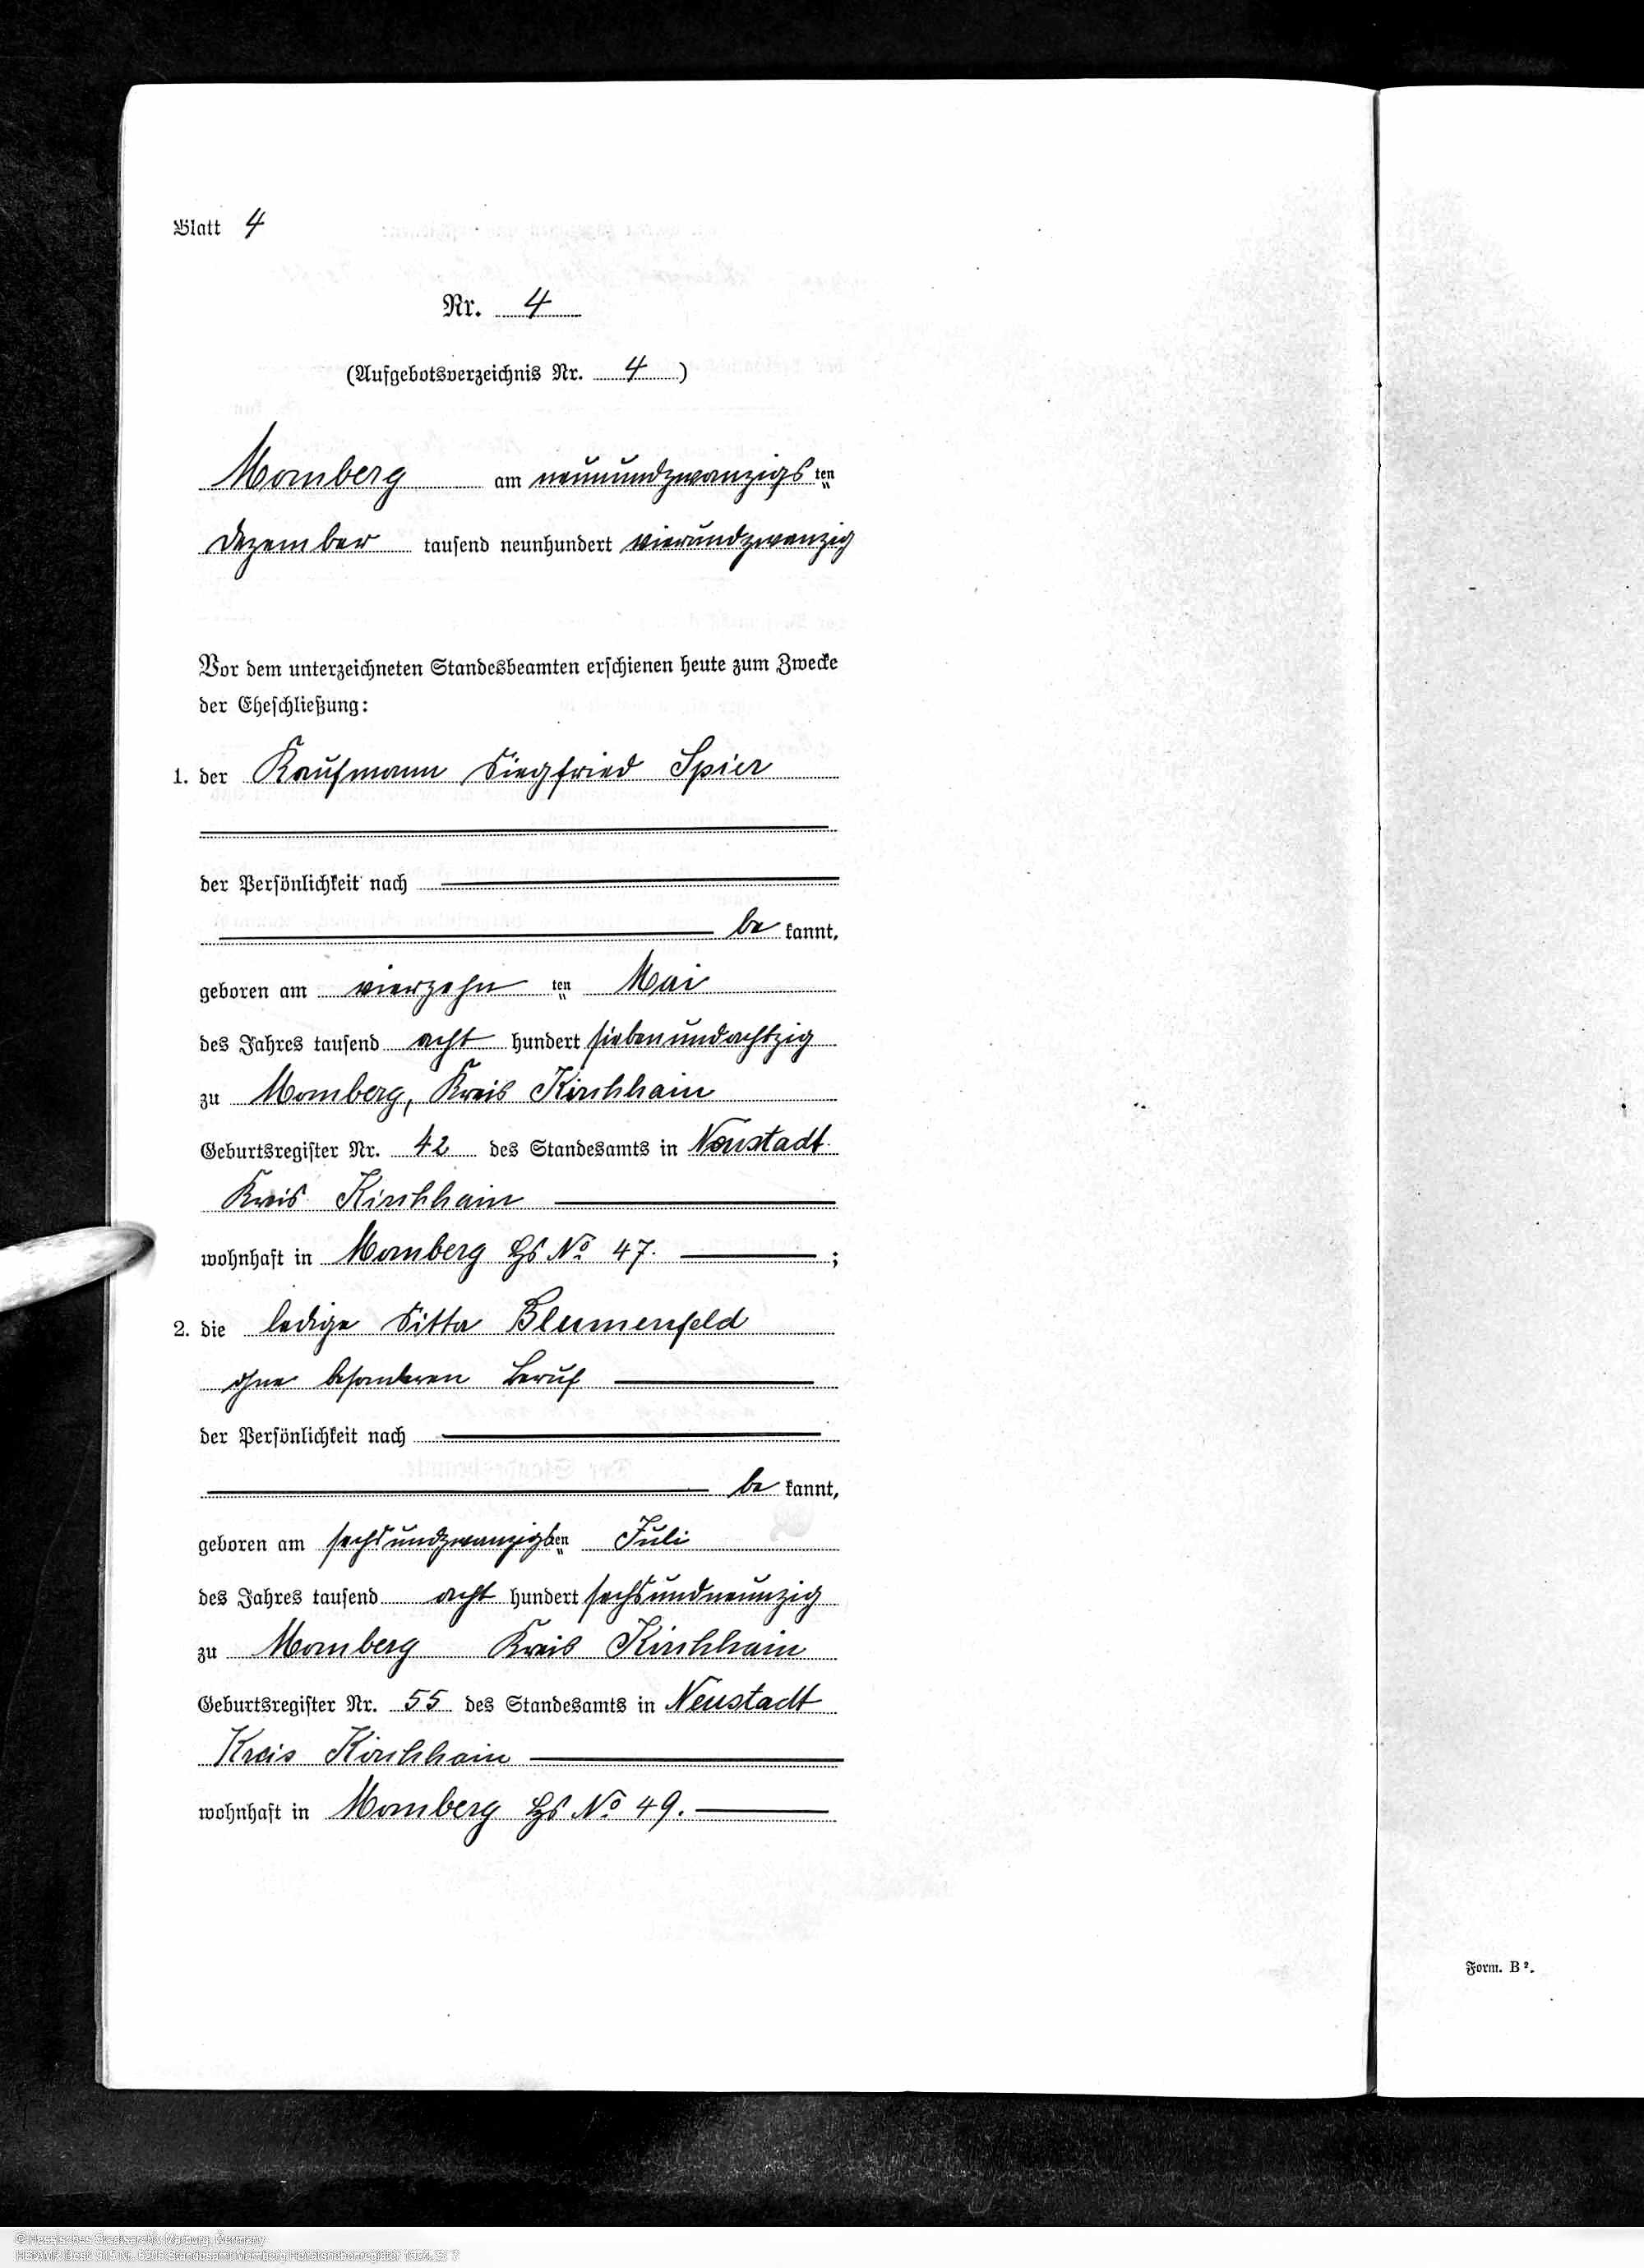 Blatt 4
Nr. 4
(Aufgebotsverzeichnis Nr. 4)
Momberg am neunundzwanzigsten
Dezember tausend neunhundert vierundzwanzig
Vor dem unterzeichneten Standesbeamten erschienen heute zum Zwecke
der Eheschließung:
1. der Kaufmann Siegfried Spier
der Persönlichkeit nach
be kannt,
geboren am vierzehn ten Mai
des Jahres tausend acht hundert siebenundachtzig
zu Momberg, Kreis Kirchhain
Geburtsregister Nr. 42 des Standesamts in Neustadt
Kreis Kirchhain
wohnhaft in Momberg Hs No 47. ;
2. die ledige Sitta Blumenfeld
ohne besonderen Beruf
der Persönlichkeit nach
be kannt,
geboren am sechsundzwanzigsten Juli
des Jahres tausend acht hundert sechsundneunzig
zu Momberg Kreis Kirchhain
Geburtsregister Nr. 55 des Standesamts in Neustadt
Kreis Kirchhain
wohnhaft in Momberg Hs No 49.
Form. B 2.
© Hessisches Staatsarchiv Marburg, Germany